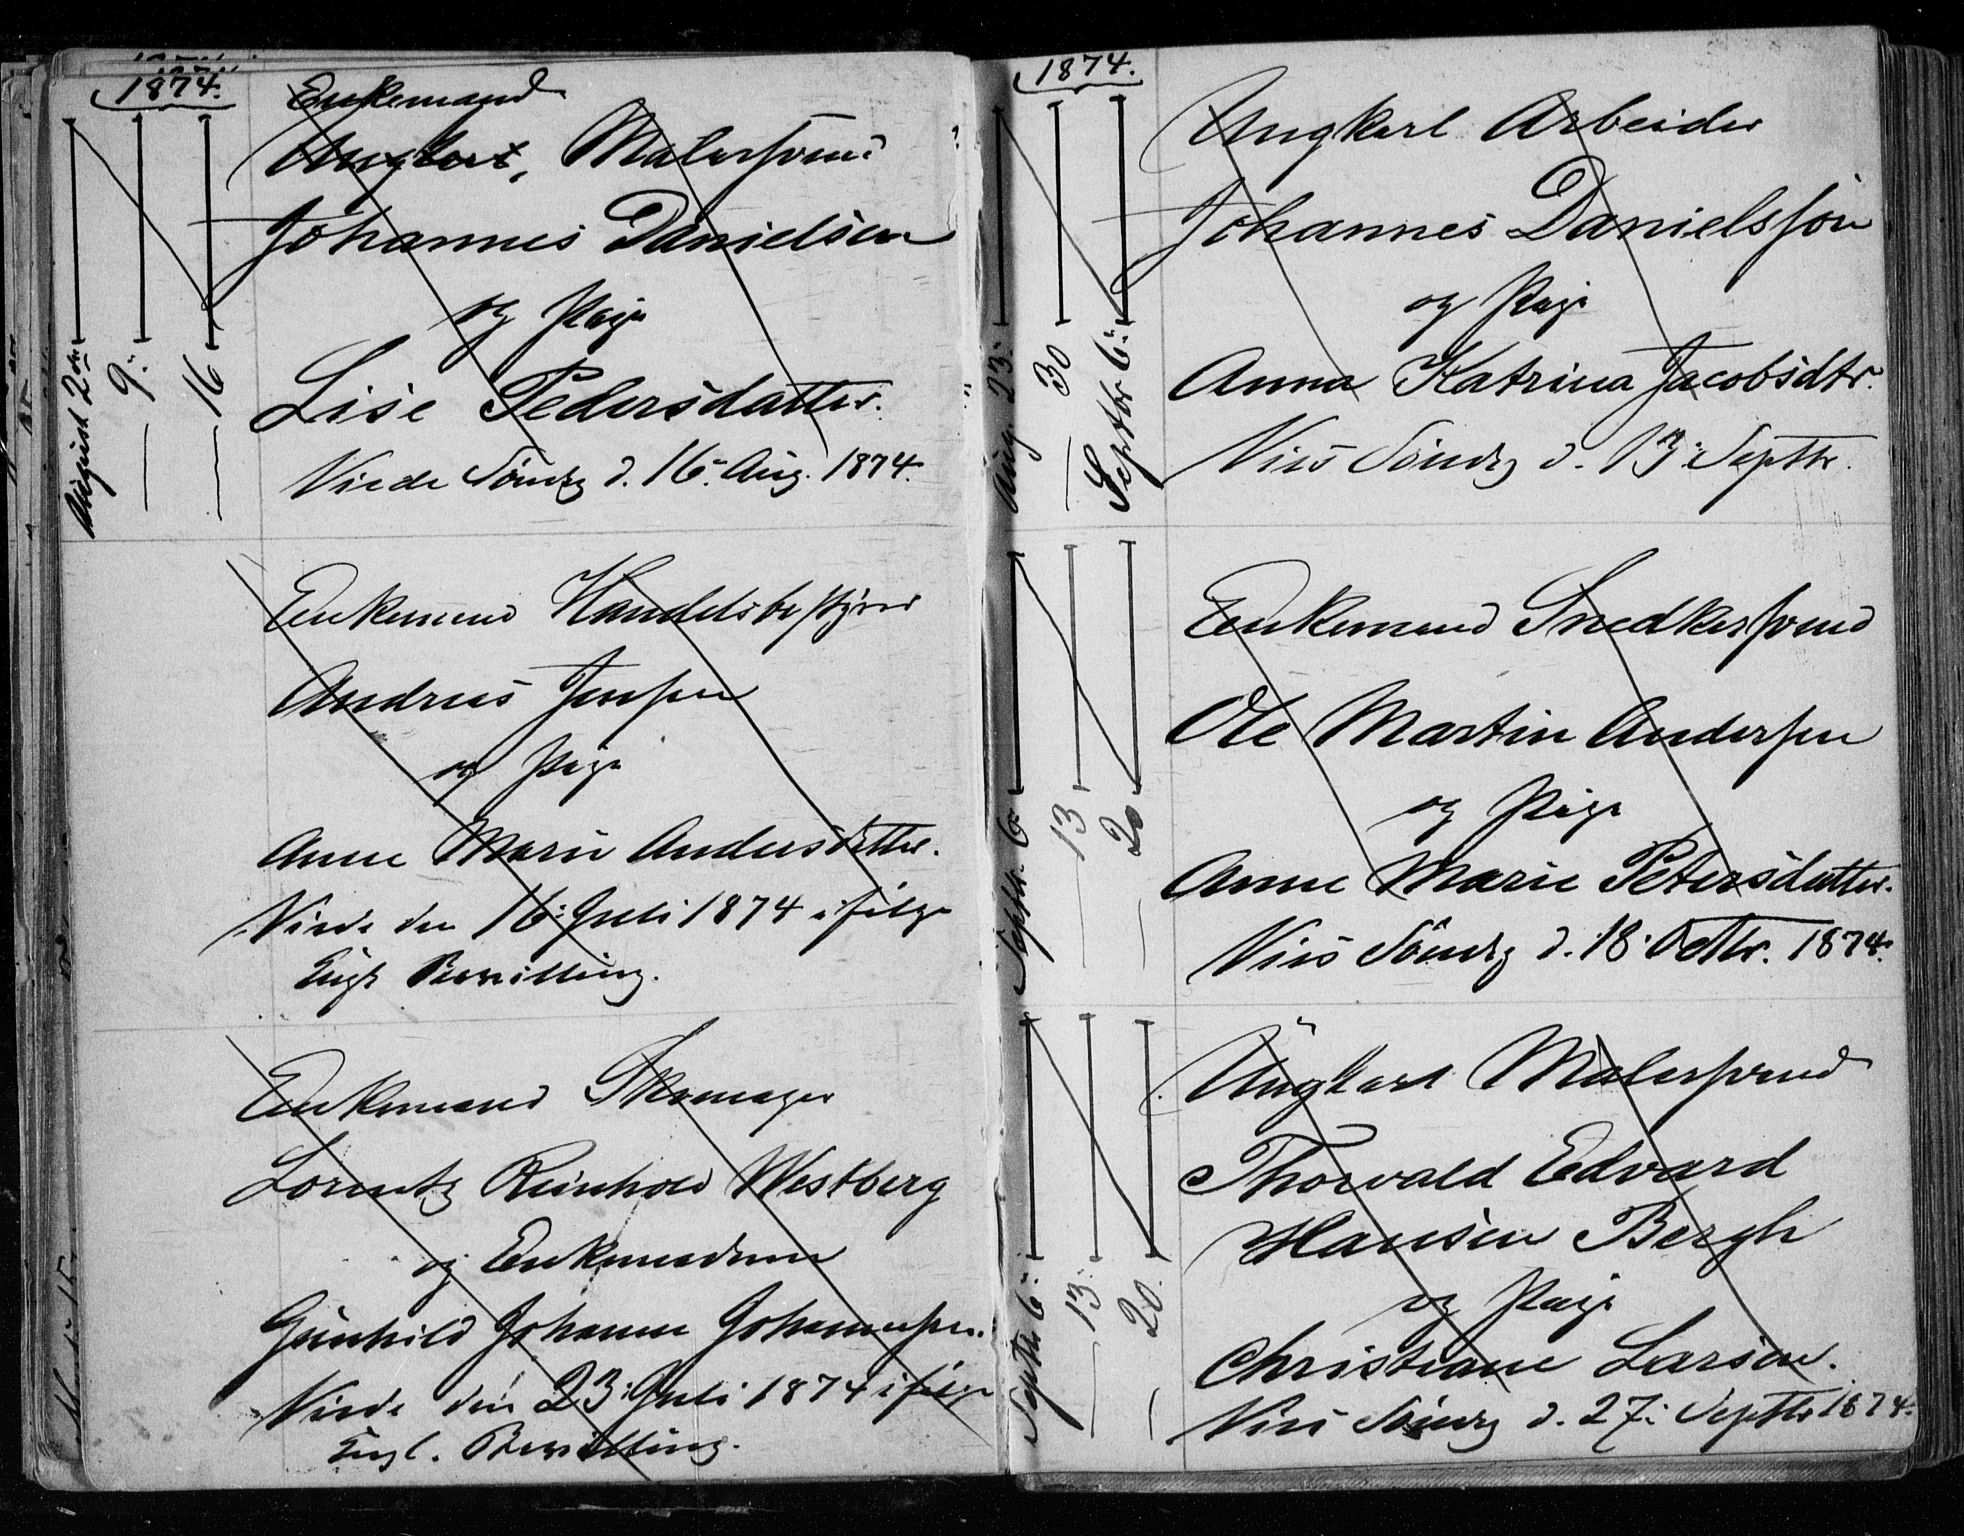 1874.
August 2den
9:
16
Enkemand
Ungkarl, Malersvend
Johannes Danielsen
og Pige
Lise Pedersdatter.
Viede Søndg d. 16: Aug. 1874.
Enkemand Handelsbestyrer
Andreas Jensen
og Pige
Anne Marie Andersdatter.
Viede den 16: Juli 1874 ifølge
Kngl Bevilling.
Enkemand Skomager
Lorentz Reinhold Westberg
og Enkemadame
Gunhild Johanne Johannesen.
Viede den 23: Juli 1874 ifølge
Kngl. Bevilling.
1874.
Aug. 23:
30
Septbr 6:
Ungkarl Arbeider
Johannes Danielsson
og Pige
Anna Katrina Jacobsdtr.
Vies Søndg d. 13: Septbr.
Septbr. 6:
13
20
Enkemand Snedkersvend
Ole Martin Andersen
og Pige
Anne Marie Petersdatter.
Vies Søndg d. 18: Octbr. 1874.
Septbr 6:
13:
20.
Ungkarl Malersvend
Thorvald Edvard
Hansen Bergh
og Pige
Christiane Larsen.
Vies Søndg d. 27: Septbr 1874.